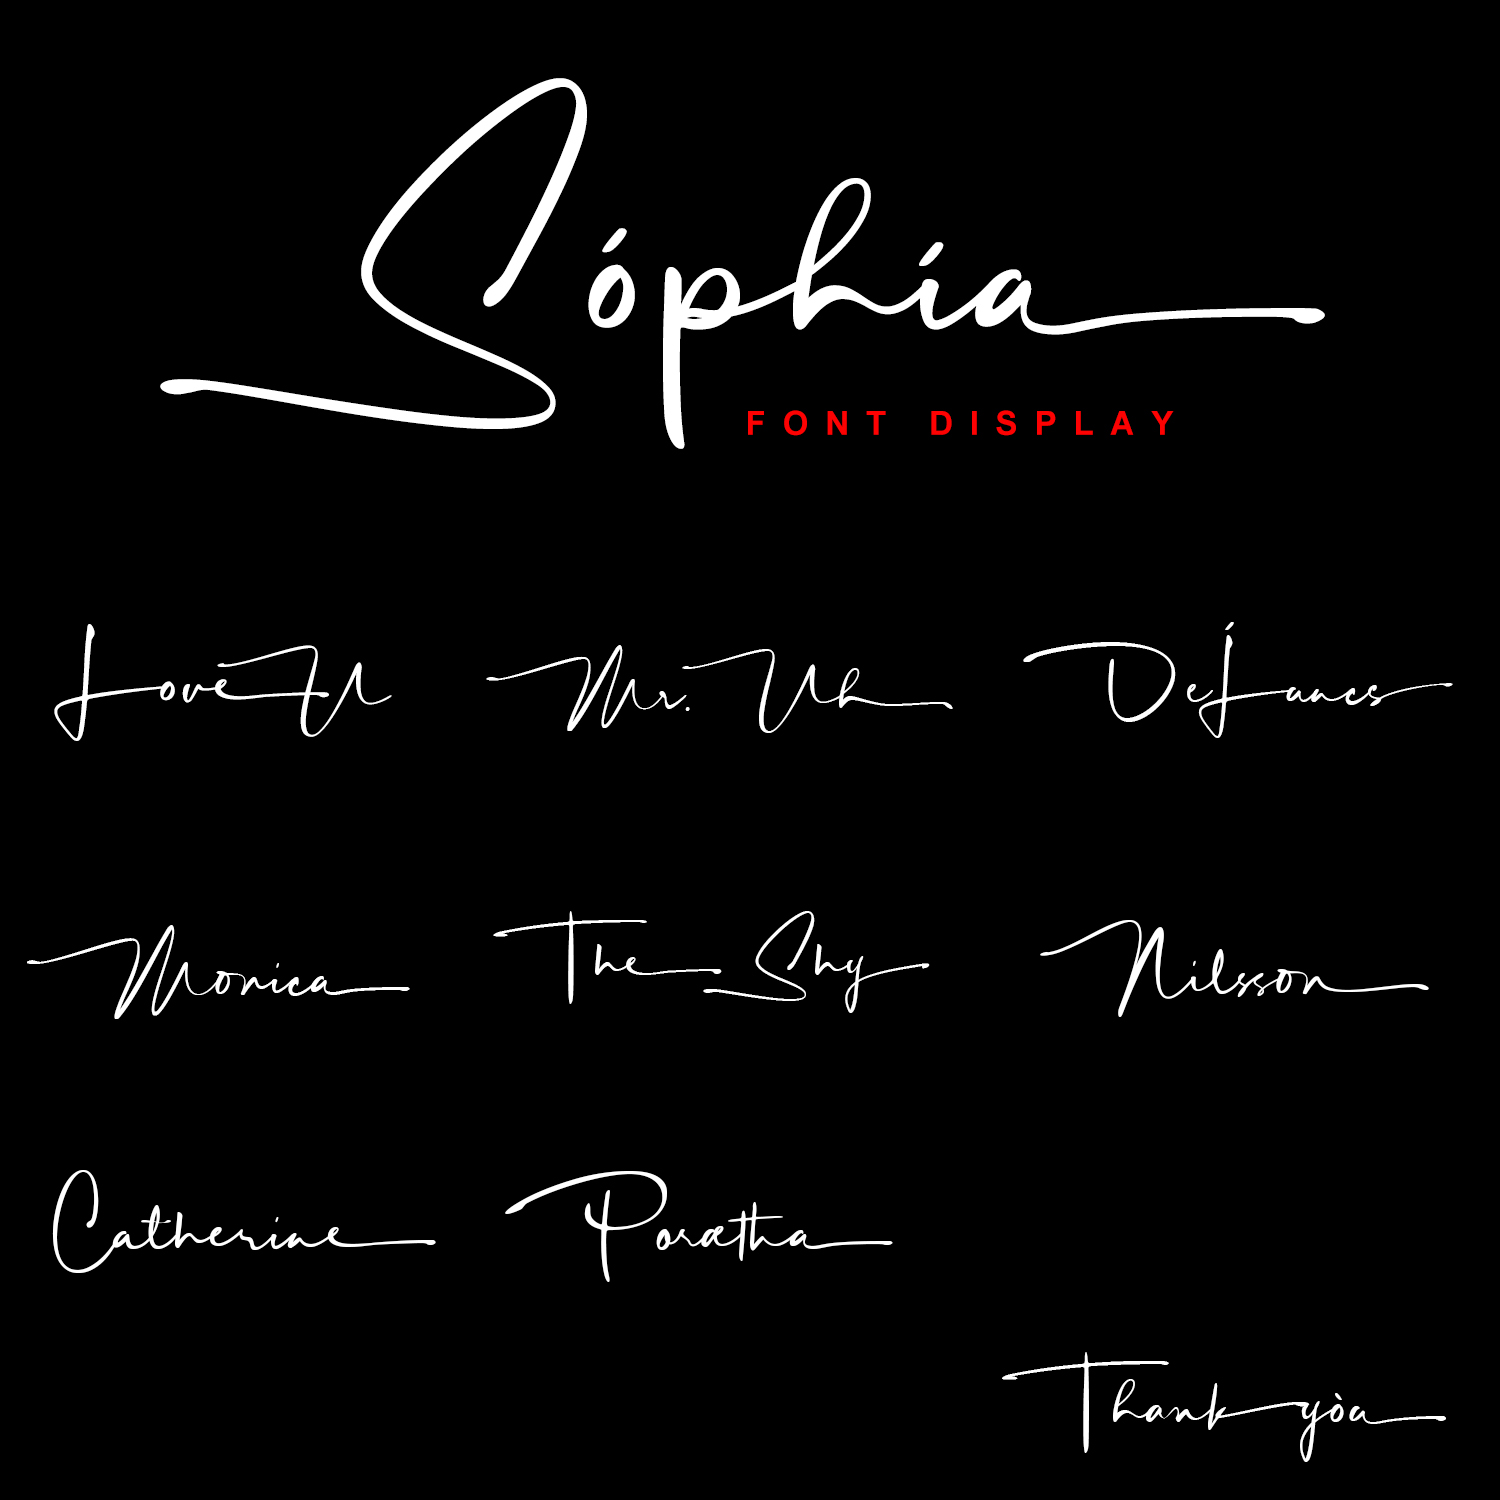 Sóphía
FONT DISPLAY
Love U
Mr. Uh
Monica
The Shy
Nilsson
Catherine
Poratha
Thank yòu